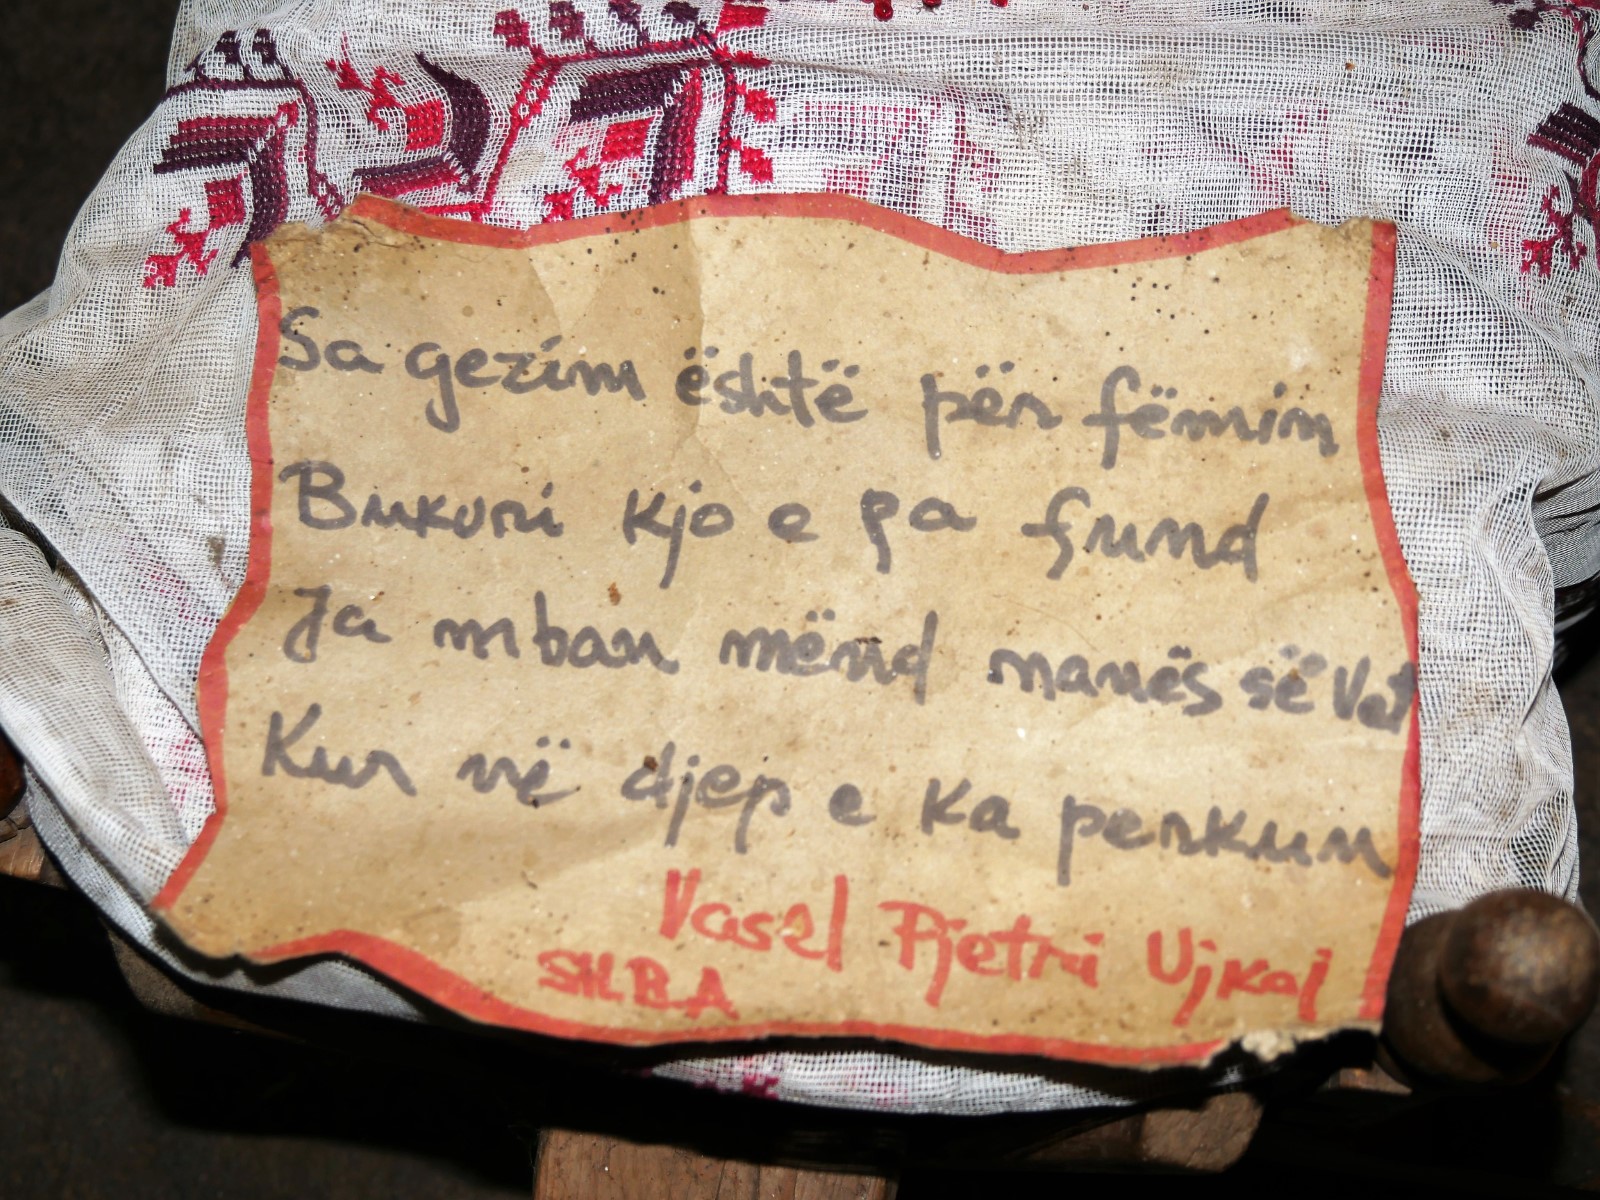 Sa gezim është për fëmim
Bukuri kjo e pa fund
Ja mban mënd nanës së vet
Kur në djep e ka perkun
Vasel Pjetri Ujkaj